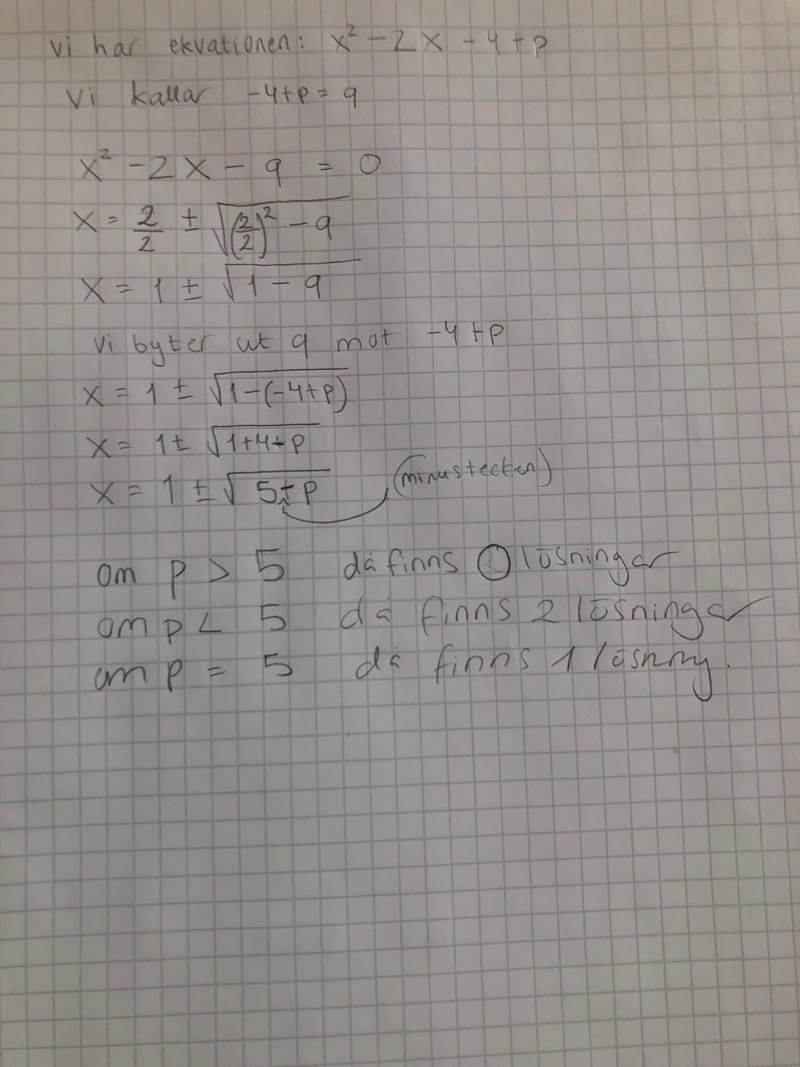 vi har ekvationen: x² - 2x - 4 + p
vi kallar -4+p = q
x² - 2x - q = 0
x = 2/2 ± √((2/2)² - q)
x = 1 ± √(1 - q)
vi byter ut q mot -4+p
x = 1 ± √(1-(-4+p))
x = 1± √(1+4-p)
x = 1 ± √(5-p) (minustecken)
om p > 5 då finns 0 lösningar
om p < 5 då finns 2 lösningar
om p = 5 då finns 1 lösning.